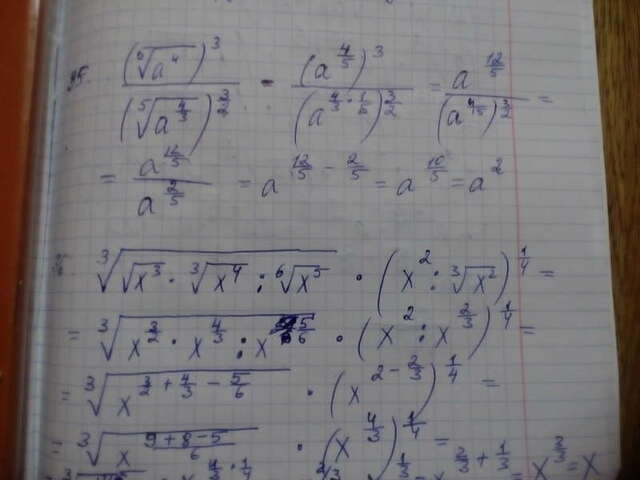 95. (⁵√a⁴)³ / (⁵√a^(4/3))^(3/2) = (a^(4/5))³ / (a^(4/3 · 1/5))^(3/2) = a^(12/5) / (a^(4/15))^(3/2) =
= a^(12/5) / a^(2/5) = a^(12/5 − 2/5) = a^(10/5) = a²
³√(√x³ · ³√x⁴ : ⁶√x⁵) · (x² : ³√x²)^(1/4) =
= ³√(x^(3/2) · x^(4/3) : x^(5/6)) · (x² : x^(2/3))^(1/4) =
= ³√(x^(3/2 + 4/3 − 5/6)) · (x^(2 − 2/3))^(1/4) =
= ³√(x^((9+8−5)/6)) · (x^(4/3))^(1/4) =
x^(2/3 + 1/3) = x^(3/3) = x